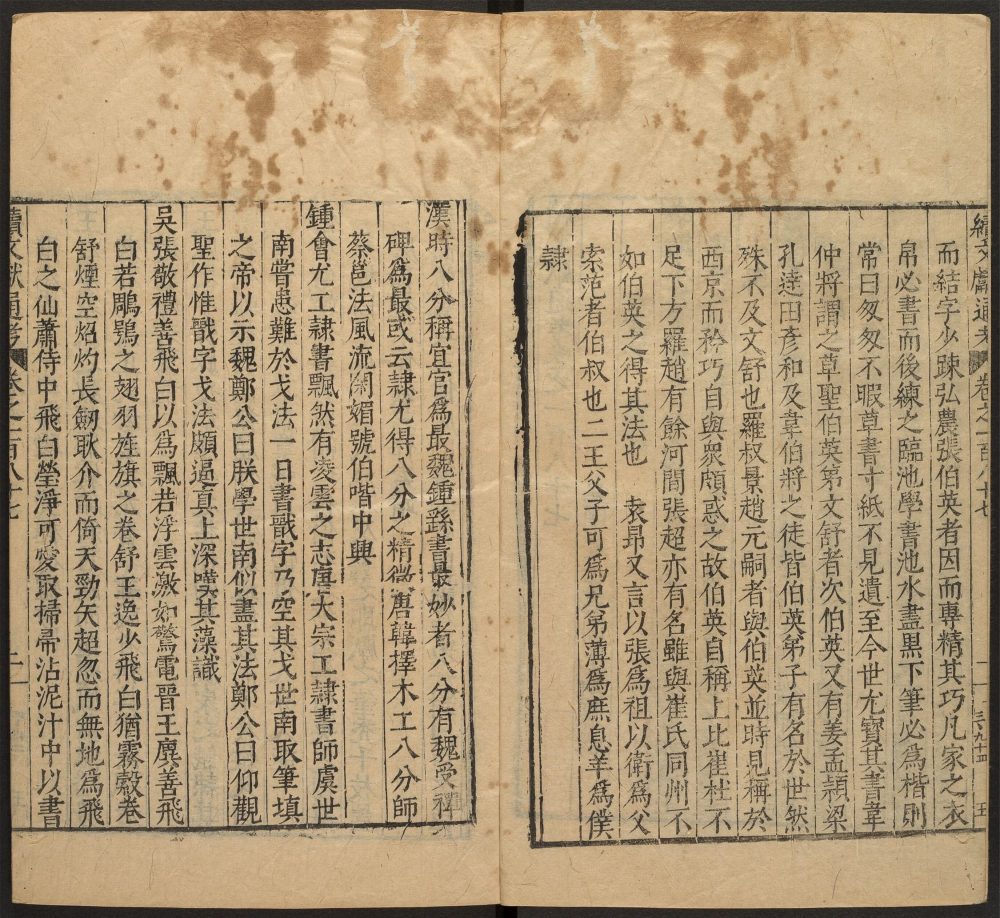 續文獻通考 卷之一百八十七
而結字少踈弘農張伯英者因而專精其巧凡家之衣
帛必書而後練之臨池學書池水盡黑下筆必爲楷則
常曰匆匆不暇草書寸紙不見遺至今世尤寶其書韋
仲將謂之草聖伯英弟文舒者次伯英又有姜孟頴梁
孔達田彦和及韋伯將之徒皆伯英弟子有名於世然
殊不及文舒也羅叔景趙元嗣者與伯英並時見稱於
西京而矜巧自與衆頗惑之故伯英自稱上比崔杜不
足下方羅趙有餘河間張超亦有名雖與崔氏同州不
如伯英之得其法也 袁昻又言以張爲祖以衛爲父
索范者伯叔也二王父子可爲兄弟薄爲庶息羊爲僕
隸
漢時八分稱宜官爲最魏鍾繇書最妙者八分有魏受禪
碑爲最或云隸尤得八分之精微唐韓擇木工八分師
蔡邕法風流閑媚號伯喈中興
鍾會尤工隸書飄然有凌雲之志唐太宗工隸書師虞世
南嘗患難於戈法一日書戩字乃空其戈世南取筆填
之帝以示魏鄭公曰朕學世南似盡其法鄭公曰仰觀
聖作惟戩字戈法頗逼真上深嘆其藻識
吳張敬禮善飛白以爲飄若浮雲激如驚電晉王廙善飛
白若鵰鶚之翅羽旌旗之卷舒王逸少飛白猶霧縠卷
舒煙空炤灼長劒耿介而倚天勁矢超忽而無地爲飛
白之仙蕭侍中飛白瑩淨可愛取掃帚沾泥汁中以書
續文獻通考 卷之一百八十七 二